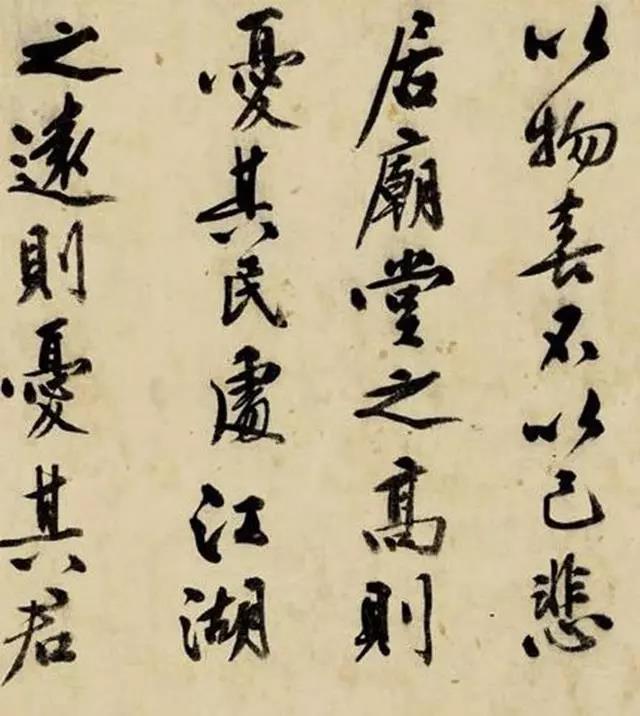 以物喜不以己悲
居廟堂之高則
憂其民處江湖
之遠則憂其君